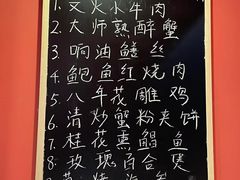 1. 文火水牛肉
2. 大师熟醉蟹
3. 响油鳝丝
4. 鲍鱼红烧肉
5. 八年花雕鸡
6. 清炒蟹粉夹饼
7. 桂花熏鲳鱼
8. 玫瑰百合煲